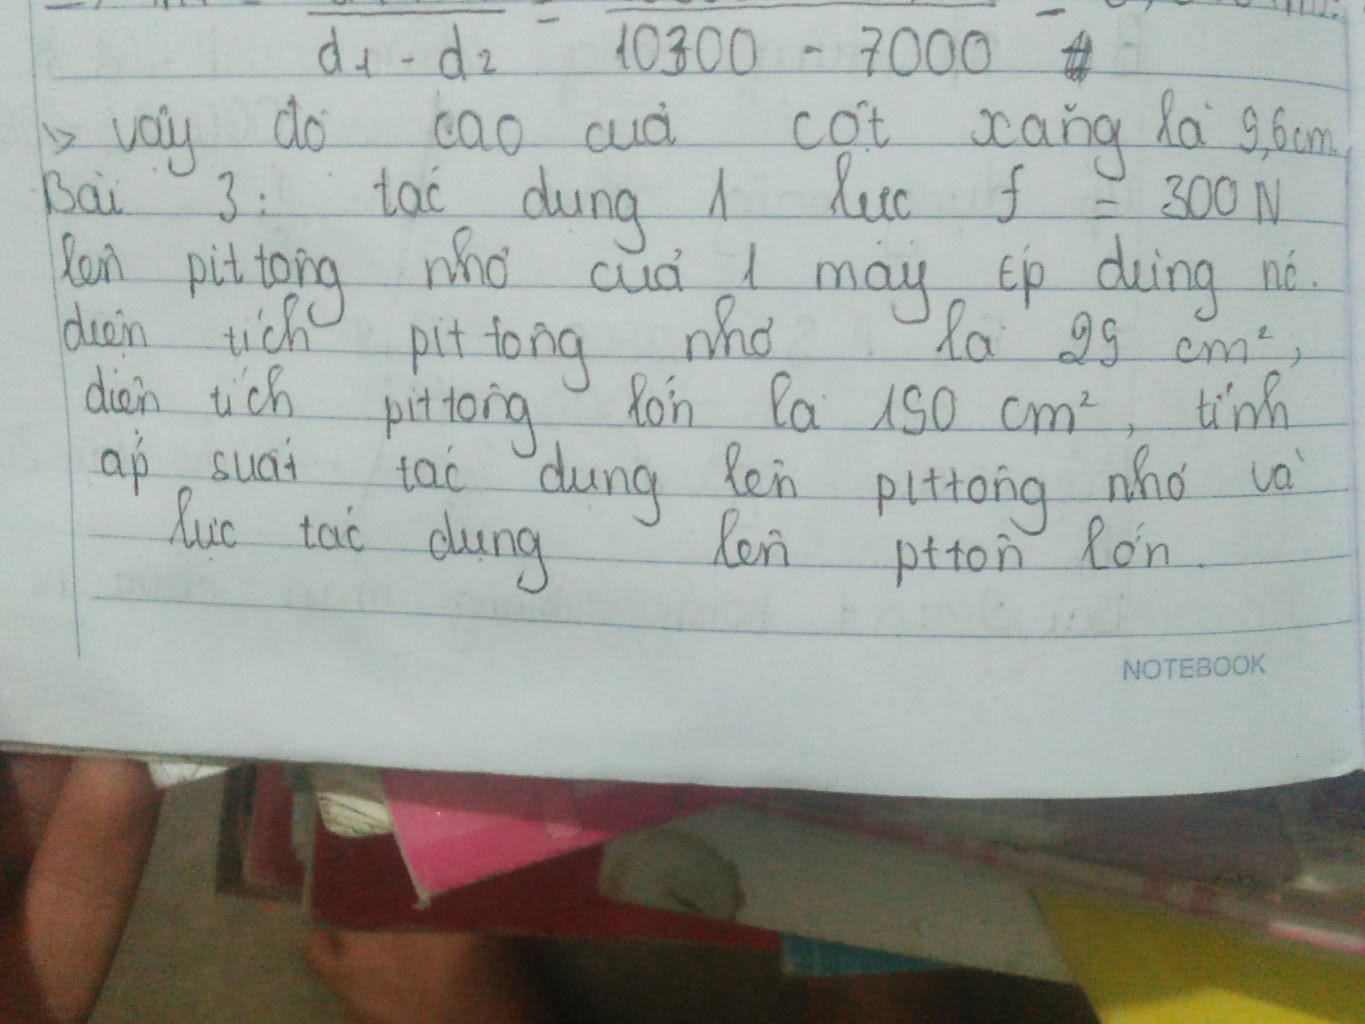 d₁ - d₂ = 10300 - 7000
=> vậy độ cao của cột xăng là 9,6cm
Bài 3: tác dụng 1 lực f = 300N
lên pittông nhỏ của 1 máy ép dùng nc.
diện tích pittông nhỏ là 25 cm²,
diện tích pittông lớn là 150 cm², tính
áp suất tác dụng lên pittông nhỏ và
lực tác dụng lên pttôn lớn.
NOTEBOOK